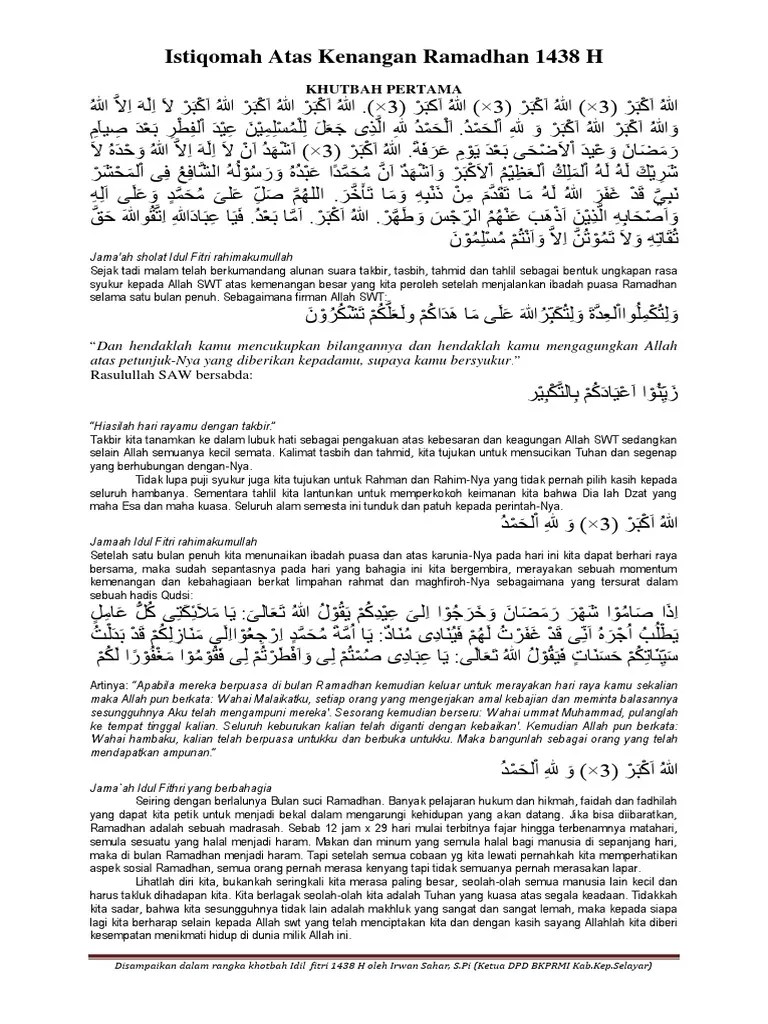 Istiqomah Atas Kenangan Ramadhan 1438 H
KHUTBAH PERTAMA
اَللهُ اَكْبَرْ (3×) اَللهُ اَكْبَرْ (3×) اَللهُ اَكبَرْ (3×). اَللهُ اَكْبَرْ اَللهُ اَكْبَرْ اَللهُ اَكْبَرْ لاَ اِلٰهَ اِلاَّ اللهُ
وَاللهُ اَكْبَرْ اَللهُ اَكْبَرْ وَ لِلّٰهِ اْلحَمْدُ. اَلْحَمْدُ للهِ الَّذِى جَعَلَ لِلْمُسْلِمِيْنَ عِيْدَ اْلفِطْرِ بَعْدَ صِيامِ
رَمَضَانَ وَعْيدَ اْلاَضْحَى بَعْدَ يَوْمِ عَرَفَةَ. اَللهُ اَكْبَرْ (3×) اَشْهَدُ اَنْ لاَ اِلٰهَ اِلاَّ اللهُ وَحْدَهُ لاَ
شَرِيْكَ لَهُ لَهُ اْلمَلِكُ اْلعَظِيْمُ اْلاَكْبَرْ وَاَشْهَدُ اَنَّ مُحَمَّدًا عَبْدُهُ وَرَسُوْلُهُ الشَّافِعُ فِى اْلمَحْشَرْ
نَبِيَّ قَدْ غَفَرَ اللهُ لَهُ مَا تَقَدَّمَ مِنْ ذَنْبِهِ وَمَا تَأَخَّرَ. اللهُمَّ صَلِّ عَلىَ مُحَمَّدٍ وَعَلَى اَلِهِ
وَاَصْحَابِهِ الَّذِيْنَ اَذْهَبَ عَنْهُمُ الرِّجْسَ وَطَهَّرْ. اَللهُ اَكْبَرْ. اَمَّا بَعْدُ. فَيَا عِبَادَاللهِ اِتَّقُوااللهَ حَقَّ
تُقَاتِهِ وَلاَ تَمُوْتُنَّ اِلاَّ وَاَنْتُمْ مُسْلِمُوْنَ
Jama'ah sholat Idul Fitri rahimakumullah
Sejak tadi malam telah berkumandang alunan suara takbir, tasbih, tahmid dan tahlil sebagai bentuk ungkapan rasa
syukur kepada Allah SWT atas kemenangan besar yang kita peroleh setelah menjalankan ibadah puasa Ramadhan
selama satu bulan penuh. Sebagaimana firman Allah SWT:
وَلِتُكْمِلُوااْلعِدَّةَ وَلِتُكَبِّرُاللهَ عَلَى مَا هَدَاكُمْ ولَعَلَّكُمْ تَشْكُرُوْنَ
“Dan hendaklah kamu mencukupkan bilangannya dan hendaklah kamu mengagungkan Allah
atas petunjuk-Nya yang diberikan kepadamu, supaya kamu bersyukur.”
Rasulullah SAW bersabda:
زَيِّنُوْا اَعْيَادَكُمْ بِالتَّكْبِيْرِ
“Hiasilah hari rayamu dengan takbir.”
Takbir kita tanamkan ke dalam lubuk hati sebagai pengakuan atas kebesaran dan keagungan Allah SWT sedangkan
selain Allah semuanya kecil semata. Kalimat tasbih dan tahmid, kita tujukan untuk mensucikan Tuhan dan segenap
yang berhubungan dengan-Nya.
Tidak lupa puji syukur juga kita tujukan untuk Rahman dan Rahim-Nya yang tidak pernah pilih kasih kepada
seluruh hambanya. Sementara tahlil kita lantunkan untuk memperkokoh keimanan kita bahwa Dia lah Dzat yang
maha Esa dan maha kuasa. Seluruh alam semesta ini tunduk dan patuh kepada perintah-Nya.
اَللهُ اَكْبَرْ (3×) وَ لِلّٰهِ اْلحَمْدُ
Jamaah Idul Fitri rahimakumullah
Setelah satu bulan penuh kita menunaikan ibadah puasa dan atas karunia-Nya pada hari ini kita dapat berhari raya
bersama, maka sudah sepantasnya pada hari yang bahagia ini kita bergembira, merayakan sebuah momentum
kemenangan dan kebahagiaan berkat limpahan rahmat dan maghfiroh-Nya sebagaimana yang tersurat dalam
sebuah hadis Qudsi:
اِذَا صَامُوْا شَهْرَ رَمَضَانَ وَخَرَجُوْا اِلىَ عِيْدِكُمْ يَقُوْلُ اللهُ تَعَالىَ: يَا مَلاَئِكَتِى كُلُّ عَامِلٍ
يَطْلُبُ اُجْرَهُ اَنِّى قَدْ غَفَرْتُ لَهُمْ فَيُنَادِى مُنَادٌ: يَا اُمَّةَ مُحَمَّدٍ اِرْجِعُوْااِلَى مَنَازِلِكُمْ قَدْ بَدَلْتُ
سَيِّئَاتِكُمْ حَسَنَاتٍ فَيَقُوْلُ اللهُ تَعَالَى: يَا عِبَادِى صُمْتُمْ لِى وَاَفْطَرْتُمْ لِى فَقُوْمُوْا مَغْفُوْرًا لَكُمْ
Artinya: “Apabila mereka berpuasa di bulan Ramadhan kemudian keluar untuk merayakan hari raya kamu sekalian
maka Allah pun berkata: 'Wahai Malaikatku, setiap orang yang mengerjakan amal kebajian dan meminta balasannya
sesungguhnya Aku telah mengampuni mereka'. Sesorang kemudian berseru: 'Wahai ummat Muhammad, pulanglah
ke tempat tinggal kalian. Seluruh keburukan kalian telah diganti dengan kebaikan'. Kemudian Allah pun berkata:
'Wahai hambaku, kalian telah berpuasa untukku dan berbuka untukku. Maka bangunlah sebagai orang yang telah
mendapatkan ampunan.”
اَللهُ اَكْبَرْ (3×) وَ لِلّٰهِ اْلحَمْدُ
Jama`ah Idul Fithri yang berbahagia
Seiring dengan berlalunya Bulan suci Ramadhan. Banyak pelajaran hukum dan hikmah, faidah dan fadhilah
yang dapat kita petik untuk menjadi bekal dalam mengarungi kehidupan yang akan datang. Jika bisa diibaratkan,
Ramadhan adalah sebuah madrasah. Sebab 12 jam x 29 hari mulai terbitnya fajar hingga terbenamnya matahari,
semula sesuatu yang halal menjadi haram. Makan dan minum yang semula halal bagi manusia di sepanjang hari,
maka di bulan Ramadhan menjadi haram. Tapi setelah semua cobaan yg kita lewati pernahkah kita memperhatikan
aspek sosial Ramadhan, semua orang pernah merasa kenyang tapi tidak semuanya pernah merasakan lapar.
Lihatlah diri kita, bukankah seringkali kita merasa paling besar, seolah-olah semua manusia lain kecil dan
harus takluk dihadapan kita. Kita berlagak seolah-olah kita adalah Tuhan yang kuasa atas segala keadaan. Tidakkah
kita sadar, bahwa kita sesungguhnya tidak lain adalah makhluk yang sangat dan sangat lemah, maka kepada siapa
lagi kita berharap selain kepada Allah swt yang telah menciptakan kita dan dengan kasih sayang Allahlah kita diberi
kesempatan menikmati hidup di dunia milik Allah ini.
Disampaikan dalam rangka khotbah Idil fitri 1438 H oleh Irwan Sahar, S.Pi (Ketua DPD BKPRMI Kab.Kep.Selayar)